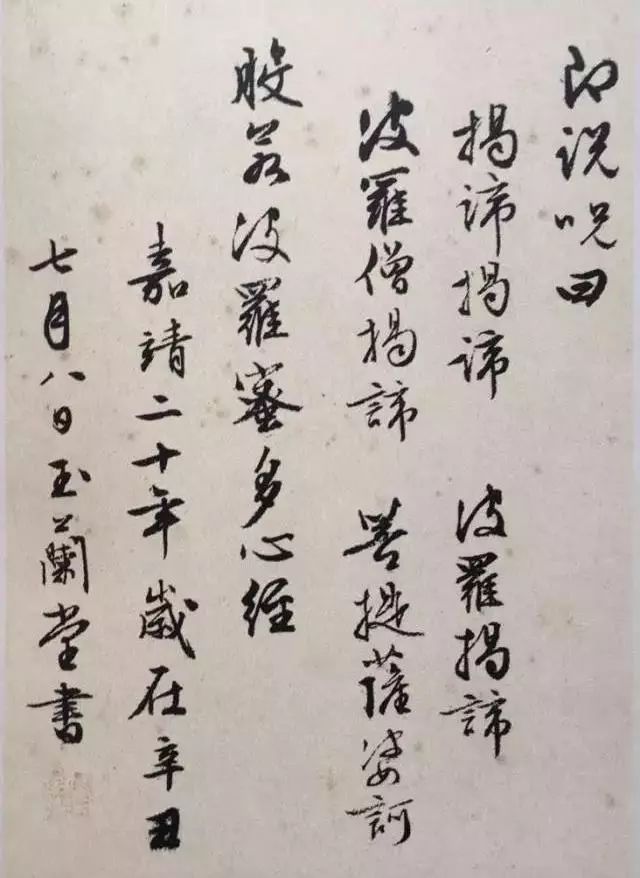 即说呪曰
揭諦揭諦 波羅揭諦
波羅僧揭諦 菩提薩婆訶
般若波羅蜜多心經
嘉靖二十年歲在辛丑
七月八日玉蘭堂書